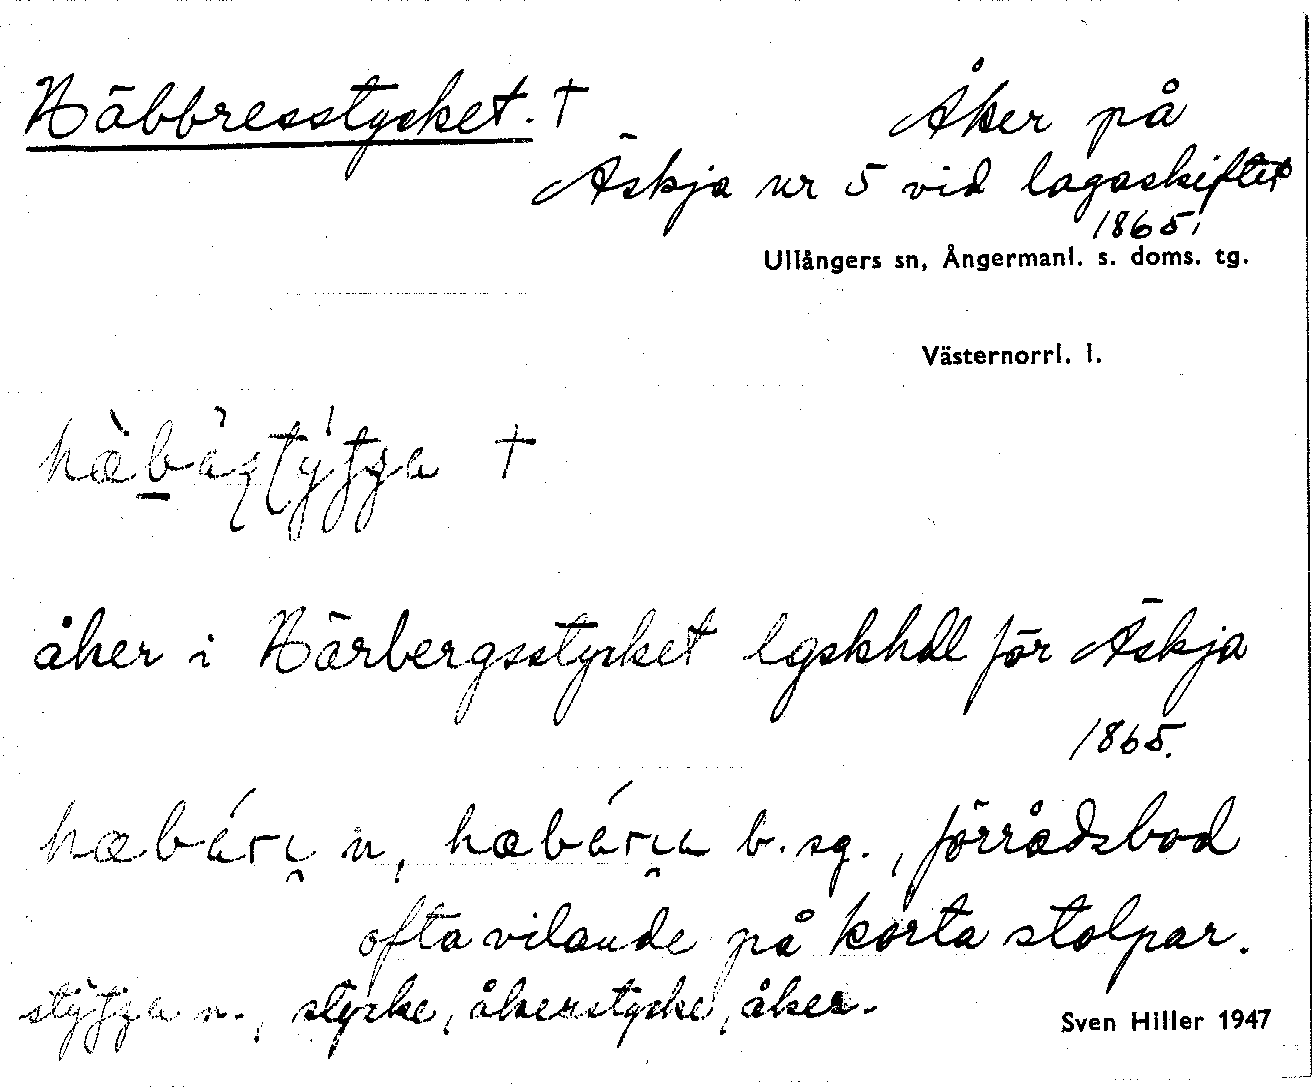 Häbbresstycket. † Åker på
Äskja nr 5 vid lagaskiftet
1865.
Ullångers sn, Ångermanl. s. doms. tg.
Västernorrl. l.
†
åker i Härbergsstycket lgskhdl för Äskja
1865.
n, b. sg., förrådsbod
ofta vilande på korta stolpar.
n., stycke, åkerstycke, åker.
Sven Hiller 1947